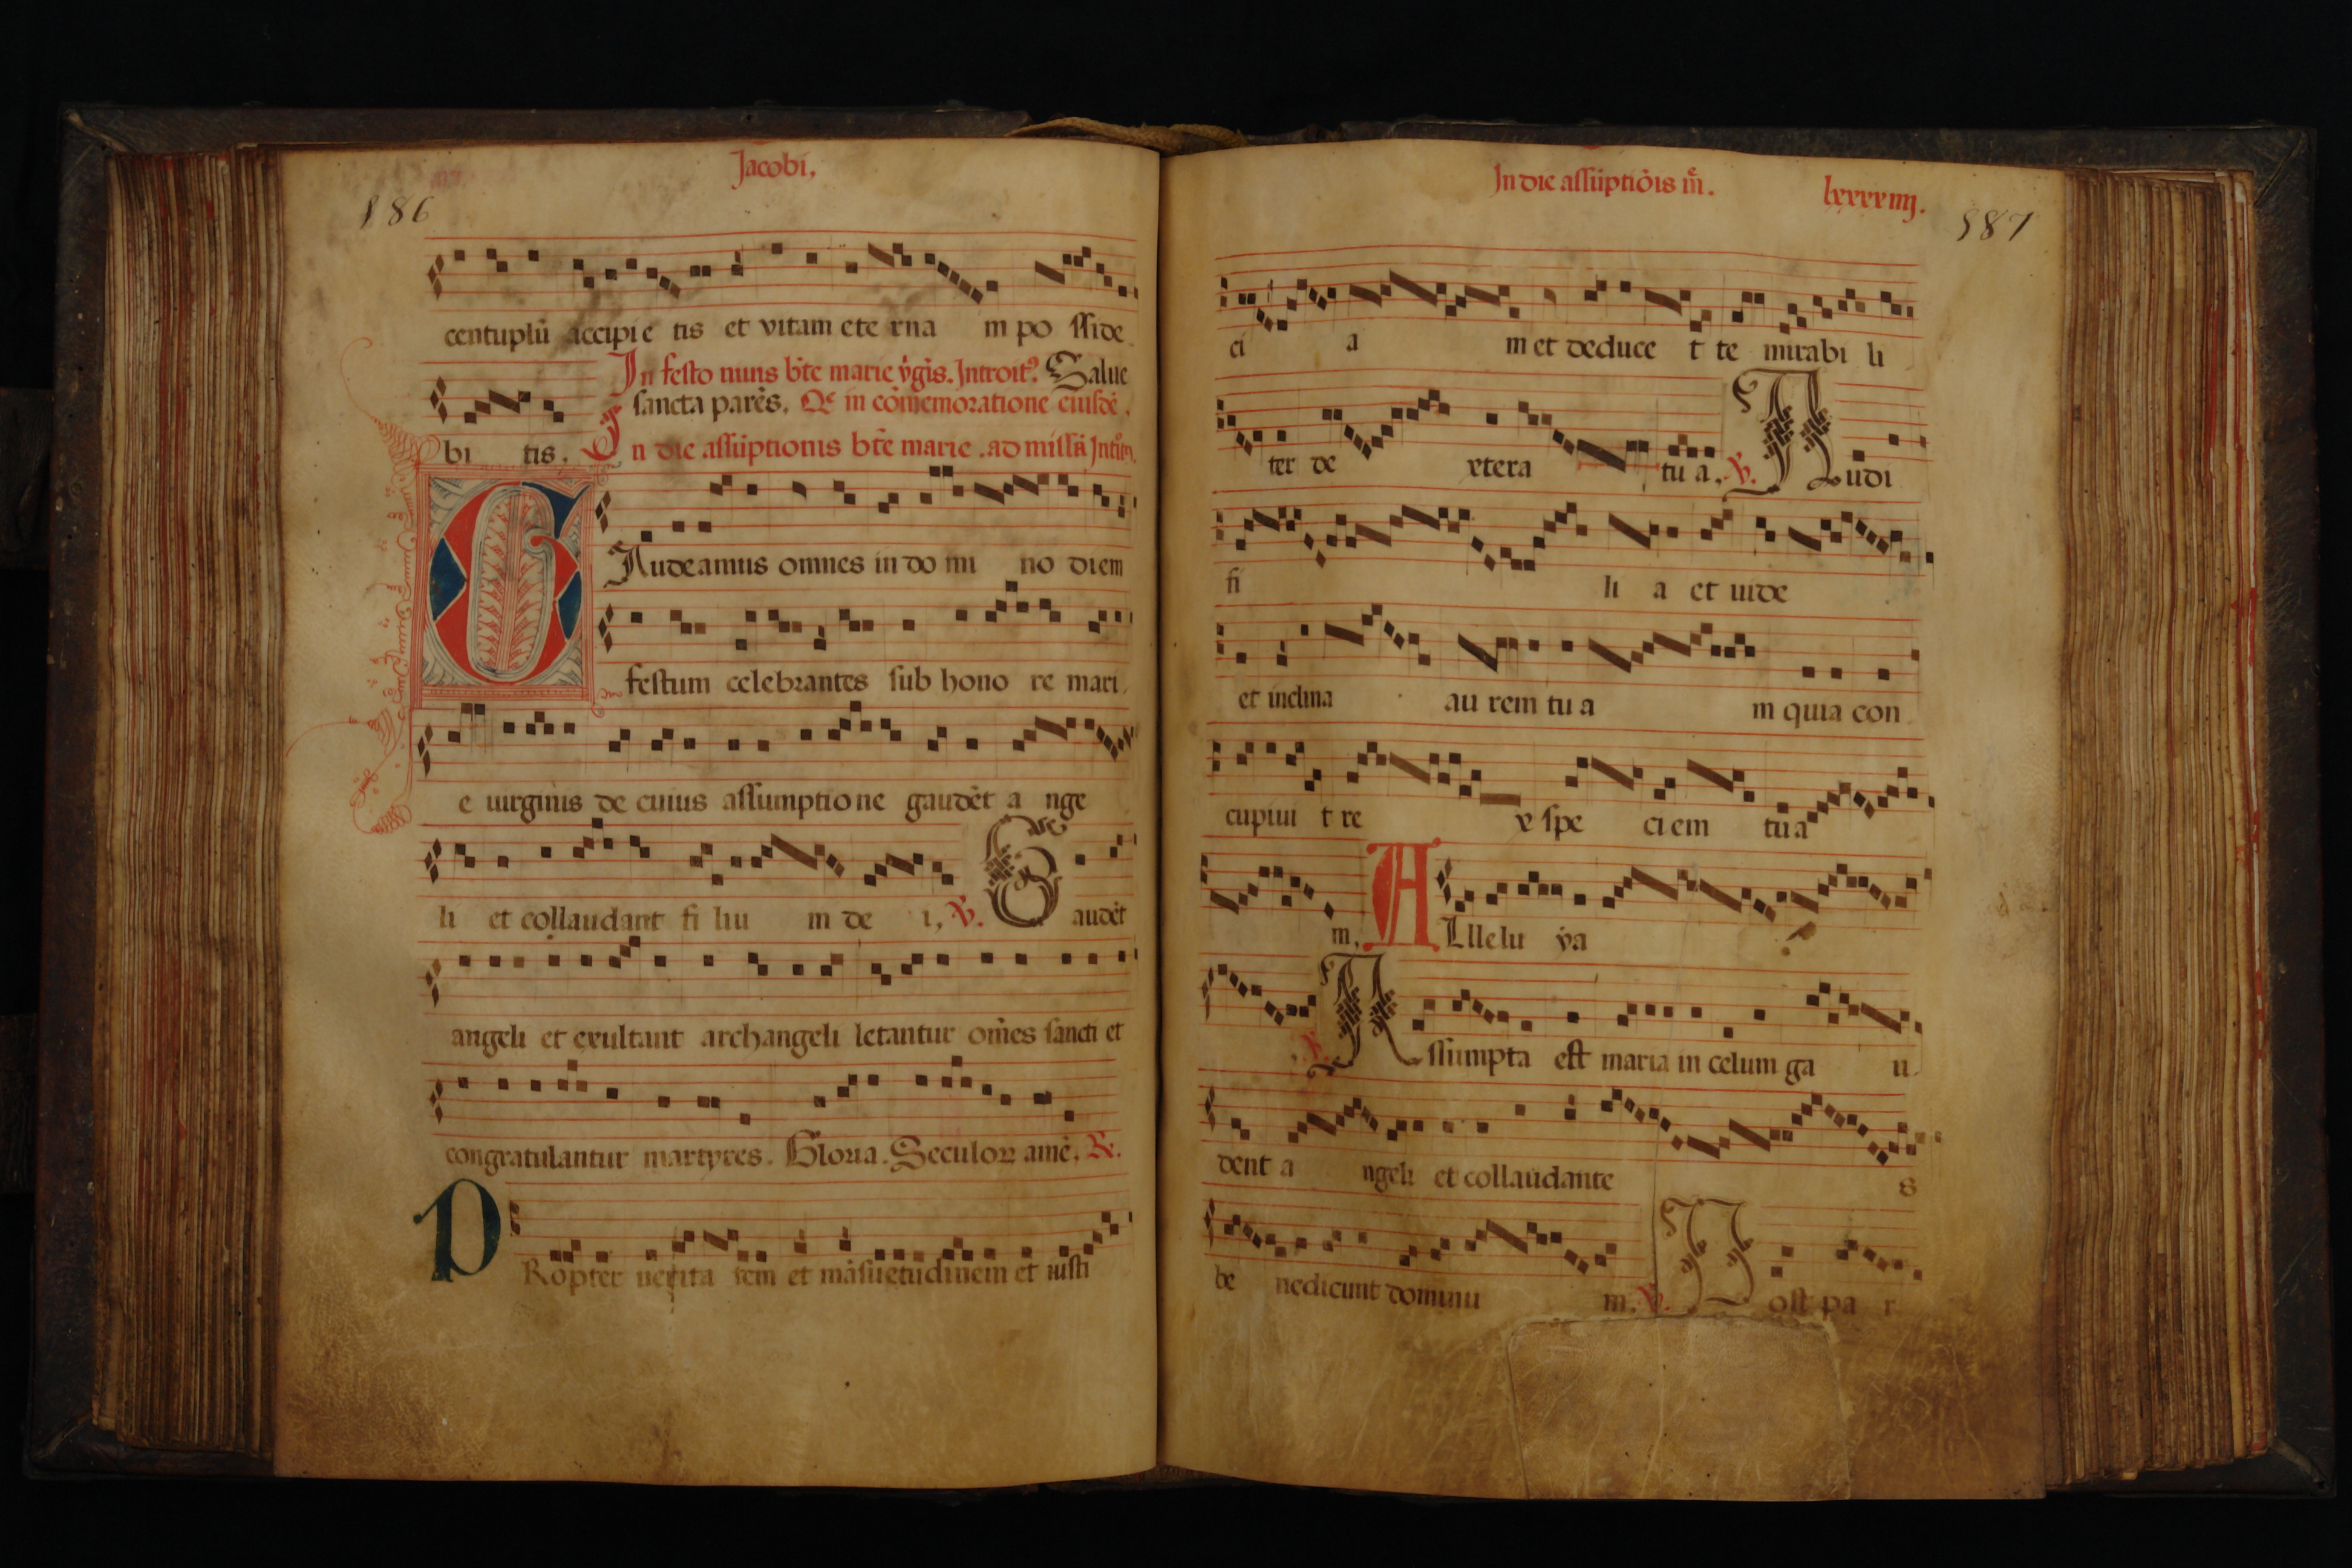 Jacobi,
186
centuplū accipie tis et vitam ete rna m po ſſide
In feſto niuis bt̄e marie v̄gīs. Introit⁹. Salue
ſancta parēs. Qꝛ in cōmemoratione eiuſdē.
bi tis. In die aſſūptionis bt̄e marie . ad miſſā Int̄
GAudeamus omnes in do mi no diem
feſtum celebrantes ſub hono re mari
e uirginis de cuius aſſumptione gaudēt a nge
li et collaudant fi liu m de i, ℣. Gaudēt
angeli et exultant archangeli letantur om̄es ſancti et
congratulantur martyres. Gloria. Seculoꝝ amē. ℟.
PRopter uerita tem et māſuetudinem et iuſti
In die aſſūptiōis m̄e.
lxxxxiiij.
187
ci a m et deduce t te mirabi li
ter de xtera tu a. ℣. Audi
fi li a et uide
et inclina au rem tu a m quia con
cupiui t re x ſpe ciem tu a
m. ALlelu ya
℣. Aſſumpta eſt maria in celum ga u
dent a ngeli et collaudante s
be nedicunt dominu m. ℣. Poſt pa r